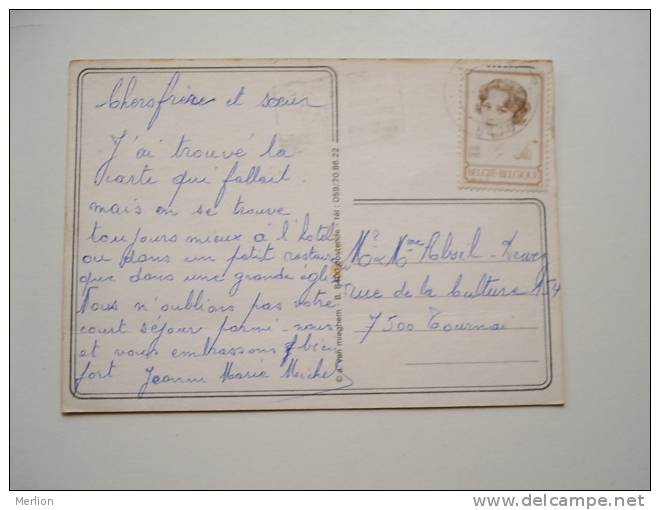 Chers frère et sœur
J'ai trouvé la
carte qui fallait
mais on se trouve
toujours mieux à l'hotel
ou dans un petit restau
que dans une grande égli
Nous n'oublions pas votre
court séjour parmi-nous
et vous embrassons bien
fort Jeanne Marie Michel
© a. van mieghem - B. 8400 oostende - tél.: 059/70.88.22
BELGIË-BELGIQUE
Mr & Mme Absil -
rue de la Culture 154
7500 Tournai
Merlion
delcampe.net